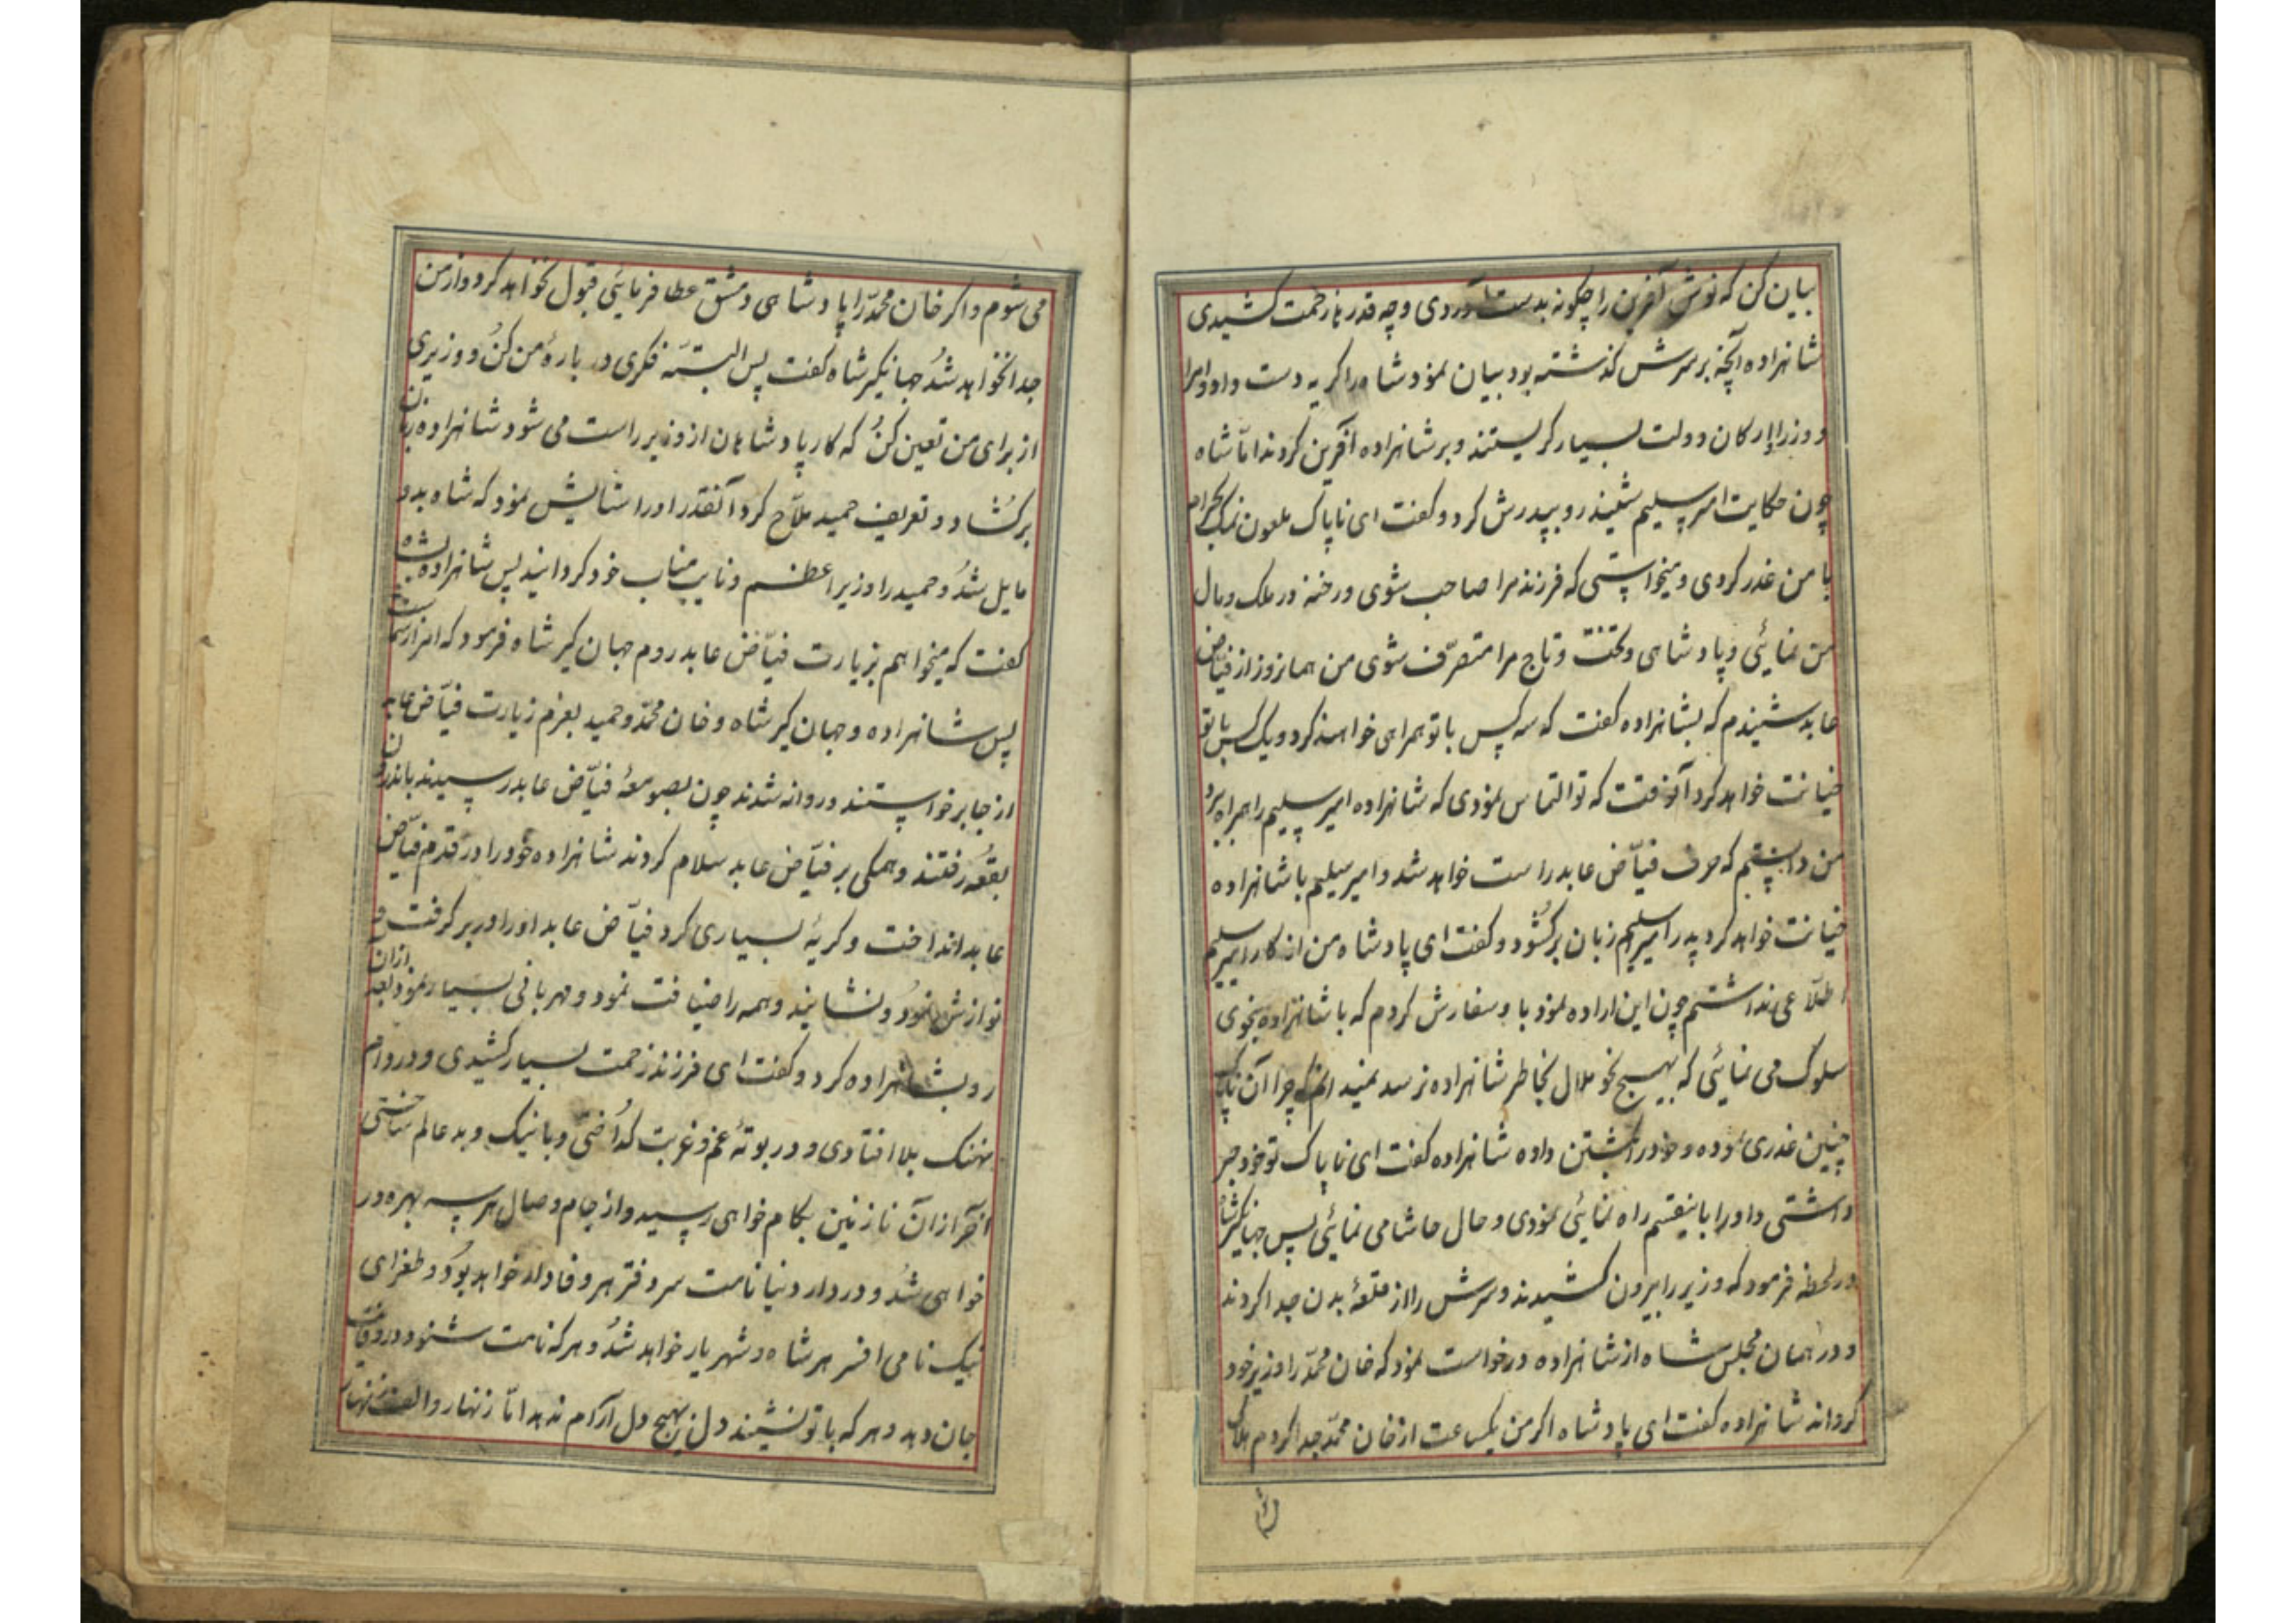 بیان کن که نوش آفرین را چگونه بدست آوردی و چه قدرها زحمت کشیدی
شاهزاده آنچه بر سرش گذشته بود بیان نمود شاه را گریه دست داد و امرا
و وزرا و ارکان دولت بسیار گریستند و بر شاهزاده آفرین کردند امّا شاه
چون حکایت امیر سلیم شنید رو بپدرش کرد و گفت ای ناپاک ملعون نمک بحرام
با من غدر کردی و میخواستی که فرزند مرا صاحب شوی و رخنه در ملک و مال
من نمائی و پادشاهی و تخت و تاج مرا متصرّف شوی من همان روز از فیّاض
عابد شنیدم که بشاهزاده گفت که سه کس با تو همراهی خواهند کرد و یک کس با تو
خیانت خواهد کرد آنوقت که تو التماس نمودی که شاهزاده امیر سلیم را همراه برد
من دانستم که حرف فیّاض عابد راست خواهد شد و امیر سلیم با شاهزاده
خیانت خواهد کرد پدر امیر سلیم زبان برگشود و گفت ای پادشاه من از کار امیر سلیم
اطلّاعی نداشتم چون این اراده نمود باو سفارش کردم که با شاهزاده بنحوی
سلوک می نمائی که بهیچ نحو ملال بخاطر شاهزاده نرسد نمیدانم که چرا آن ناپاک
چنین غدری نموده و خود را بکشتن داده شاهزاده گفت ای ناپاک تو خود خبر
داشتی و او را باینقسم راه نمائی نمودی و حال حاشا می نمائی پس جهانگیر شاه
در لحظه فرمود که وزیر را بیرون کشیدند و سرش را از قلعهٔ بدن جدا کردند
و در همان مجلس شاه از شاهزاده درخواست نمود که خان محمّد را وزیر خود
گرداند شاهزاده گفت ای پادشاه اگر من یکساعت از خان محمّد جدا گردم هلاک
می شوم و اگر خان محمّد را پادشاهی دمشق عطا فرمائی قبول نخواهد کرد و از من
جدا نخواهد شد جهانگیر شاه گفت پس البتّه فکری در بارهٔ من کن و وزیری
از برای من تعین کن که کار پادشاهان از وزیر راست می شود شاهزاده زبان
برگشاد و تعریف حمید ملّاح کرد آنقدر او را ستایش نمود که شاه بدو
مایل شد و حمید را وزیر اعظم و نایب مناب خود گردانید پس شاهزاده بشاه
گفت که میخواهم بزیارت فیّاض عابد روم جهان گیر شاه فرمود که
پس شاهزاده و جهان گیر شاه و خان محمّد و حمید بعزم زیارت فیّاض عابد
از جا برخواستند و روانه شدند چون بصومعهٔ فیّاض عابد رسیدند باندرون
بقعه رفتند و همگی بر فیّاض عابد سلام کردند شاهزاده خود را در قدم فیّاض
عابد انداخت و گریهٔ بسیاری کرد فیّاض عابد او را در بر گرفت و
نوازش نمود و نشانید و همه را ضیافت نمود و مهربانی بسیار نمود بعد ازان
رو بشاهزاده کرد و گفت ای فرزند زحمت بسیار کشیدی و در دام
نهنک بلا افتادی و در بوتهٔ غم و غربت گداختی و با نیک و بد عالم ساختی
آخر ازان نازنین بکام خواهی رسید و از جام وصال هر سه بهره ور
خواهی شد و در دار دنیا نامت سر دفتر مهر و وفا خواهد بود و طغرای
نیک نامی افسر هر شاه و شهریار خواهد شد و هر که نامت شنود در وفایت
جان دهد و هر که با تو نشیند دل بهیچ دل آرام ندهد امّا زنهار و الف زنهار